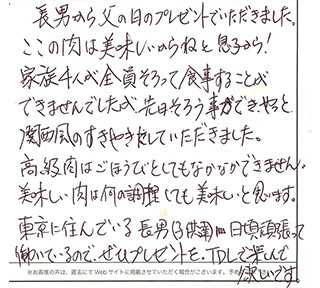 長男から父の日のプレゼントでいただきました。
ここの肉は美味しいからねと息子から!
家族4人が全員そろって食事することが
できませんでしたが、先日そろう事ができやっと
関西風のすきやきをしていただきました。
高級肉はごほうびとしてもなかなかできません。
美味しい肉は何の調理しても美味しいと思います。
東京に住んでいる長男(子供達)は日頃頑張って
働いているので、ぜひプレゼントを、TDLで楽しんで
欲しいです。
※お客様の声は、匿名にてWebサイトに掲載させていただく場合がございます。予め